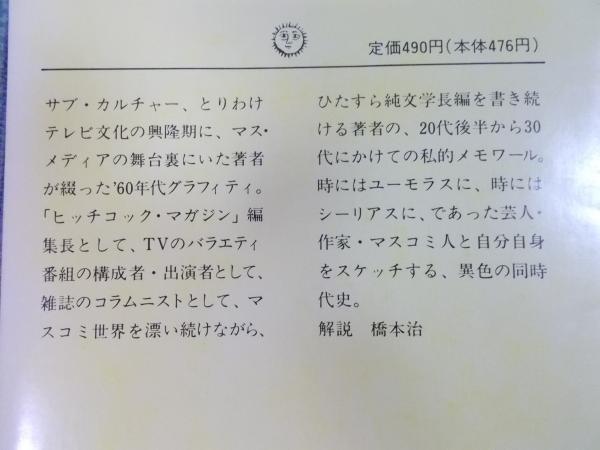 定価490円(本体476円)
サブ・カルチャー、とりわけ
テレビ文化の興隆期に、マス・
メディアの舞台裏にいた著者
が綴った'60年代グラフィティ。
「ヒッチコック・マガジン」編
集長として、TVのバラエティ
番組の構成者・出演者として、
雑誌のコラムニストとして、マ
スコミ世界を漂い続けながら、
ひたすら純文学長編を書き続
ける著者の、20代後半から30
代にかけての私的メモワール。
時にはユーモラスに、時には
シーリアスに、であった芸人・
作家・マスコミ人と自分自身
をスケッチする、異色の同時
代史。
解説 橋本治